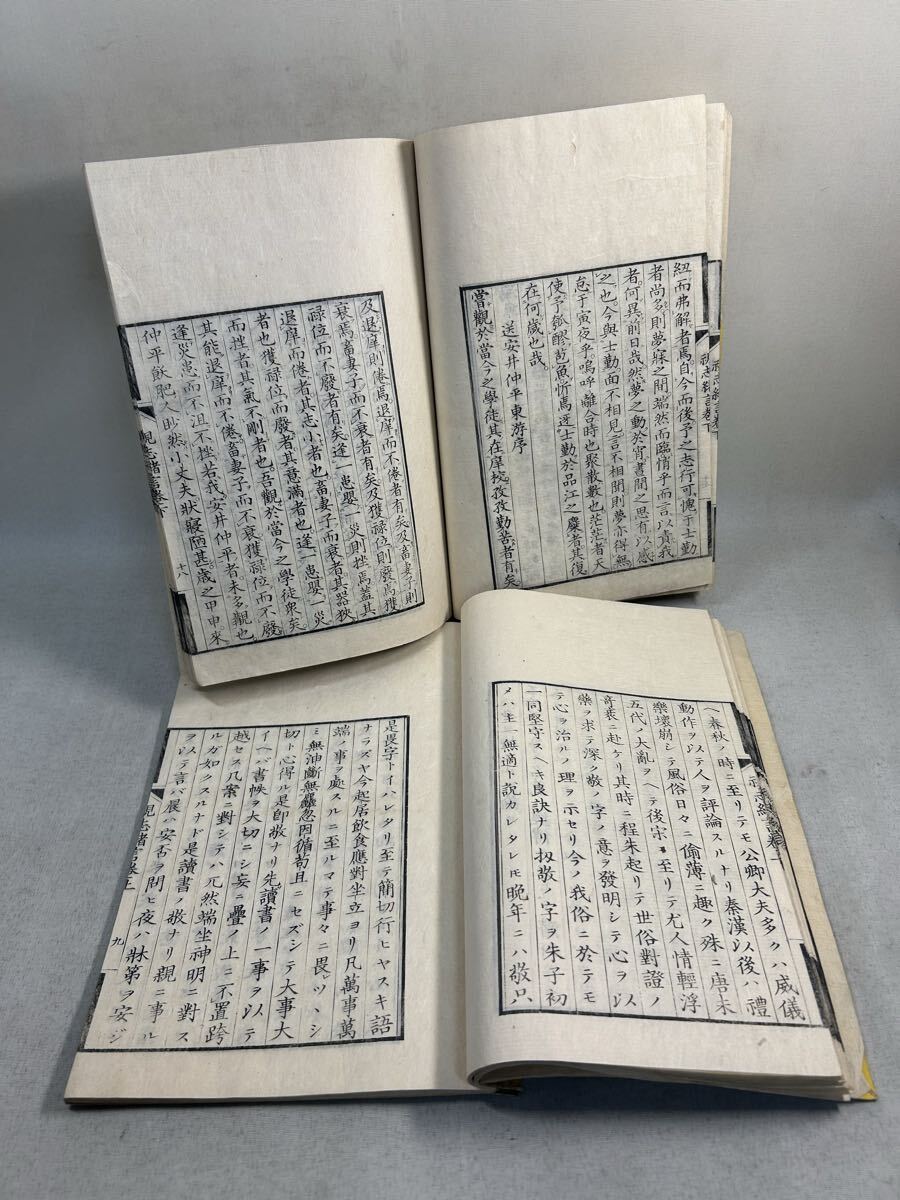 紐而弗解者焉自今而後予之志行可愧于士勤
者尚多則夢寐之間端然而臨惰乎而言以責我
者何異前日哉然夢之動於宵書間之思有以感
之也今與士勤面不相見言不相聞則夢亦得無
怠于寅夜乎嗚呼離合時也聚散數也茫茫者天
使予瓠醪苞魚忻焉迓士勤於品江之麋者其復
在何歳也哉
送安井仲平東游序
嘗觀於當今之學徒其在庠校孜孜勤苦者有矣
及退庠則倦焉退庠而不倦者有矣及畜妻子則
衰焉畜妻子而不衰者有矣及獲祿位則廢焉獲
祿位而不廢者有矣逢一患嬰一災則挫焉蓋其
退庠而倦者其志小者也畜妻子而衰者其器狹
者也獲祿位而廢者其意滿者也逢一患嬰一災
而挫者其氣不剛者也吾觀於當今之學徒衆矣
其能退庠而不倦畜妻子而不衰獲祿位而不廢
逢災患而不沮不挫若我安井仲平者未多觀也
仲平飫肥人眇然小丈夫狀寢陋甚歳之甲申來
十八
ヘ春秋ノ時ニ至リテモ公卿大夫多クハ威儀
動作ヲ以テ人ヲ評論スルナリ秦漢以後ハ禮
樂壞崩シテ風俗日々ニ偷薄ニ趣ク殊ニ唐末
五代ノ大亂ヲヘテ後宋ニ至リテ尤人情輕浮
奇裘ニ赴ケリ其時ニ程朱起リテ世俗對證ノ
藥ヲ求テ深ク敬ノ字ノ意ヲ發明シテ心ヲ以
テ心ヲ治ルノ理ヲ示セリ今ノ我俗ニ於テモ
一同堅守スヘキ良訣ナリ扨敬ノ字ヲ朱子初
メハ主一無適ト説カレタレモ晩年ニハ敬只
是畏字トイハレタリ至テ簡切行ヒヤスキ語
ナラズヤ今起居飲食應對坐立ヨリ凡萬事萬
端ノ事ヲ處スルニ至ルマテ事々ニ畏レツヽシ
ミ無油斷無麤忽因循苟且ニセズシテ大事大
切ト心得ル是即敬ナリ先讀書ノ一事ヲ以テ
イヘバ書帙ヲ大切ニシ妄ニ疊ノ上ニ不置跨
越セス几案ニ對シテハ兀然端坐神明ニ對ス
ルガ如クスルナド是讀書ノ敬ナリ親ニ事ル
ヲ以テ言バ晨ハ安否ヲ問ヒ夜ハ牀第ヲ安ジ
九